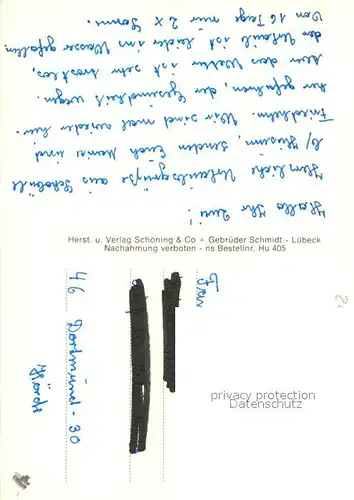 Hallo Ihr Zwei!
Herzliche Urlaubsgrüße aus Schobüll
b/ Husum, senden Euch Heinz und
Friedhelm. Wir sind mal wieder hier
her gefahren, der Gesundheit wegen.
Nur das Wetter ist sehr trostlos,
der Urlaub ist leider ins Wasser gefallen.
Von 16 Tage nur 2 x Sonne.
Herst. u. Verlag Schöning & Co + Gebrüder Schmidt - Lübeck
Nachahmung verboten - ns Bestellnr. Hu 405
Frau
46 Dortmund - 30
Hörde
privacy protection
Datenschutz